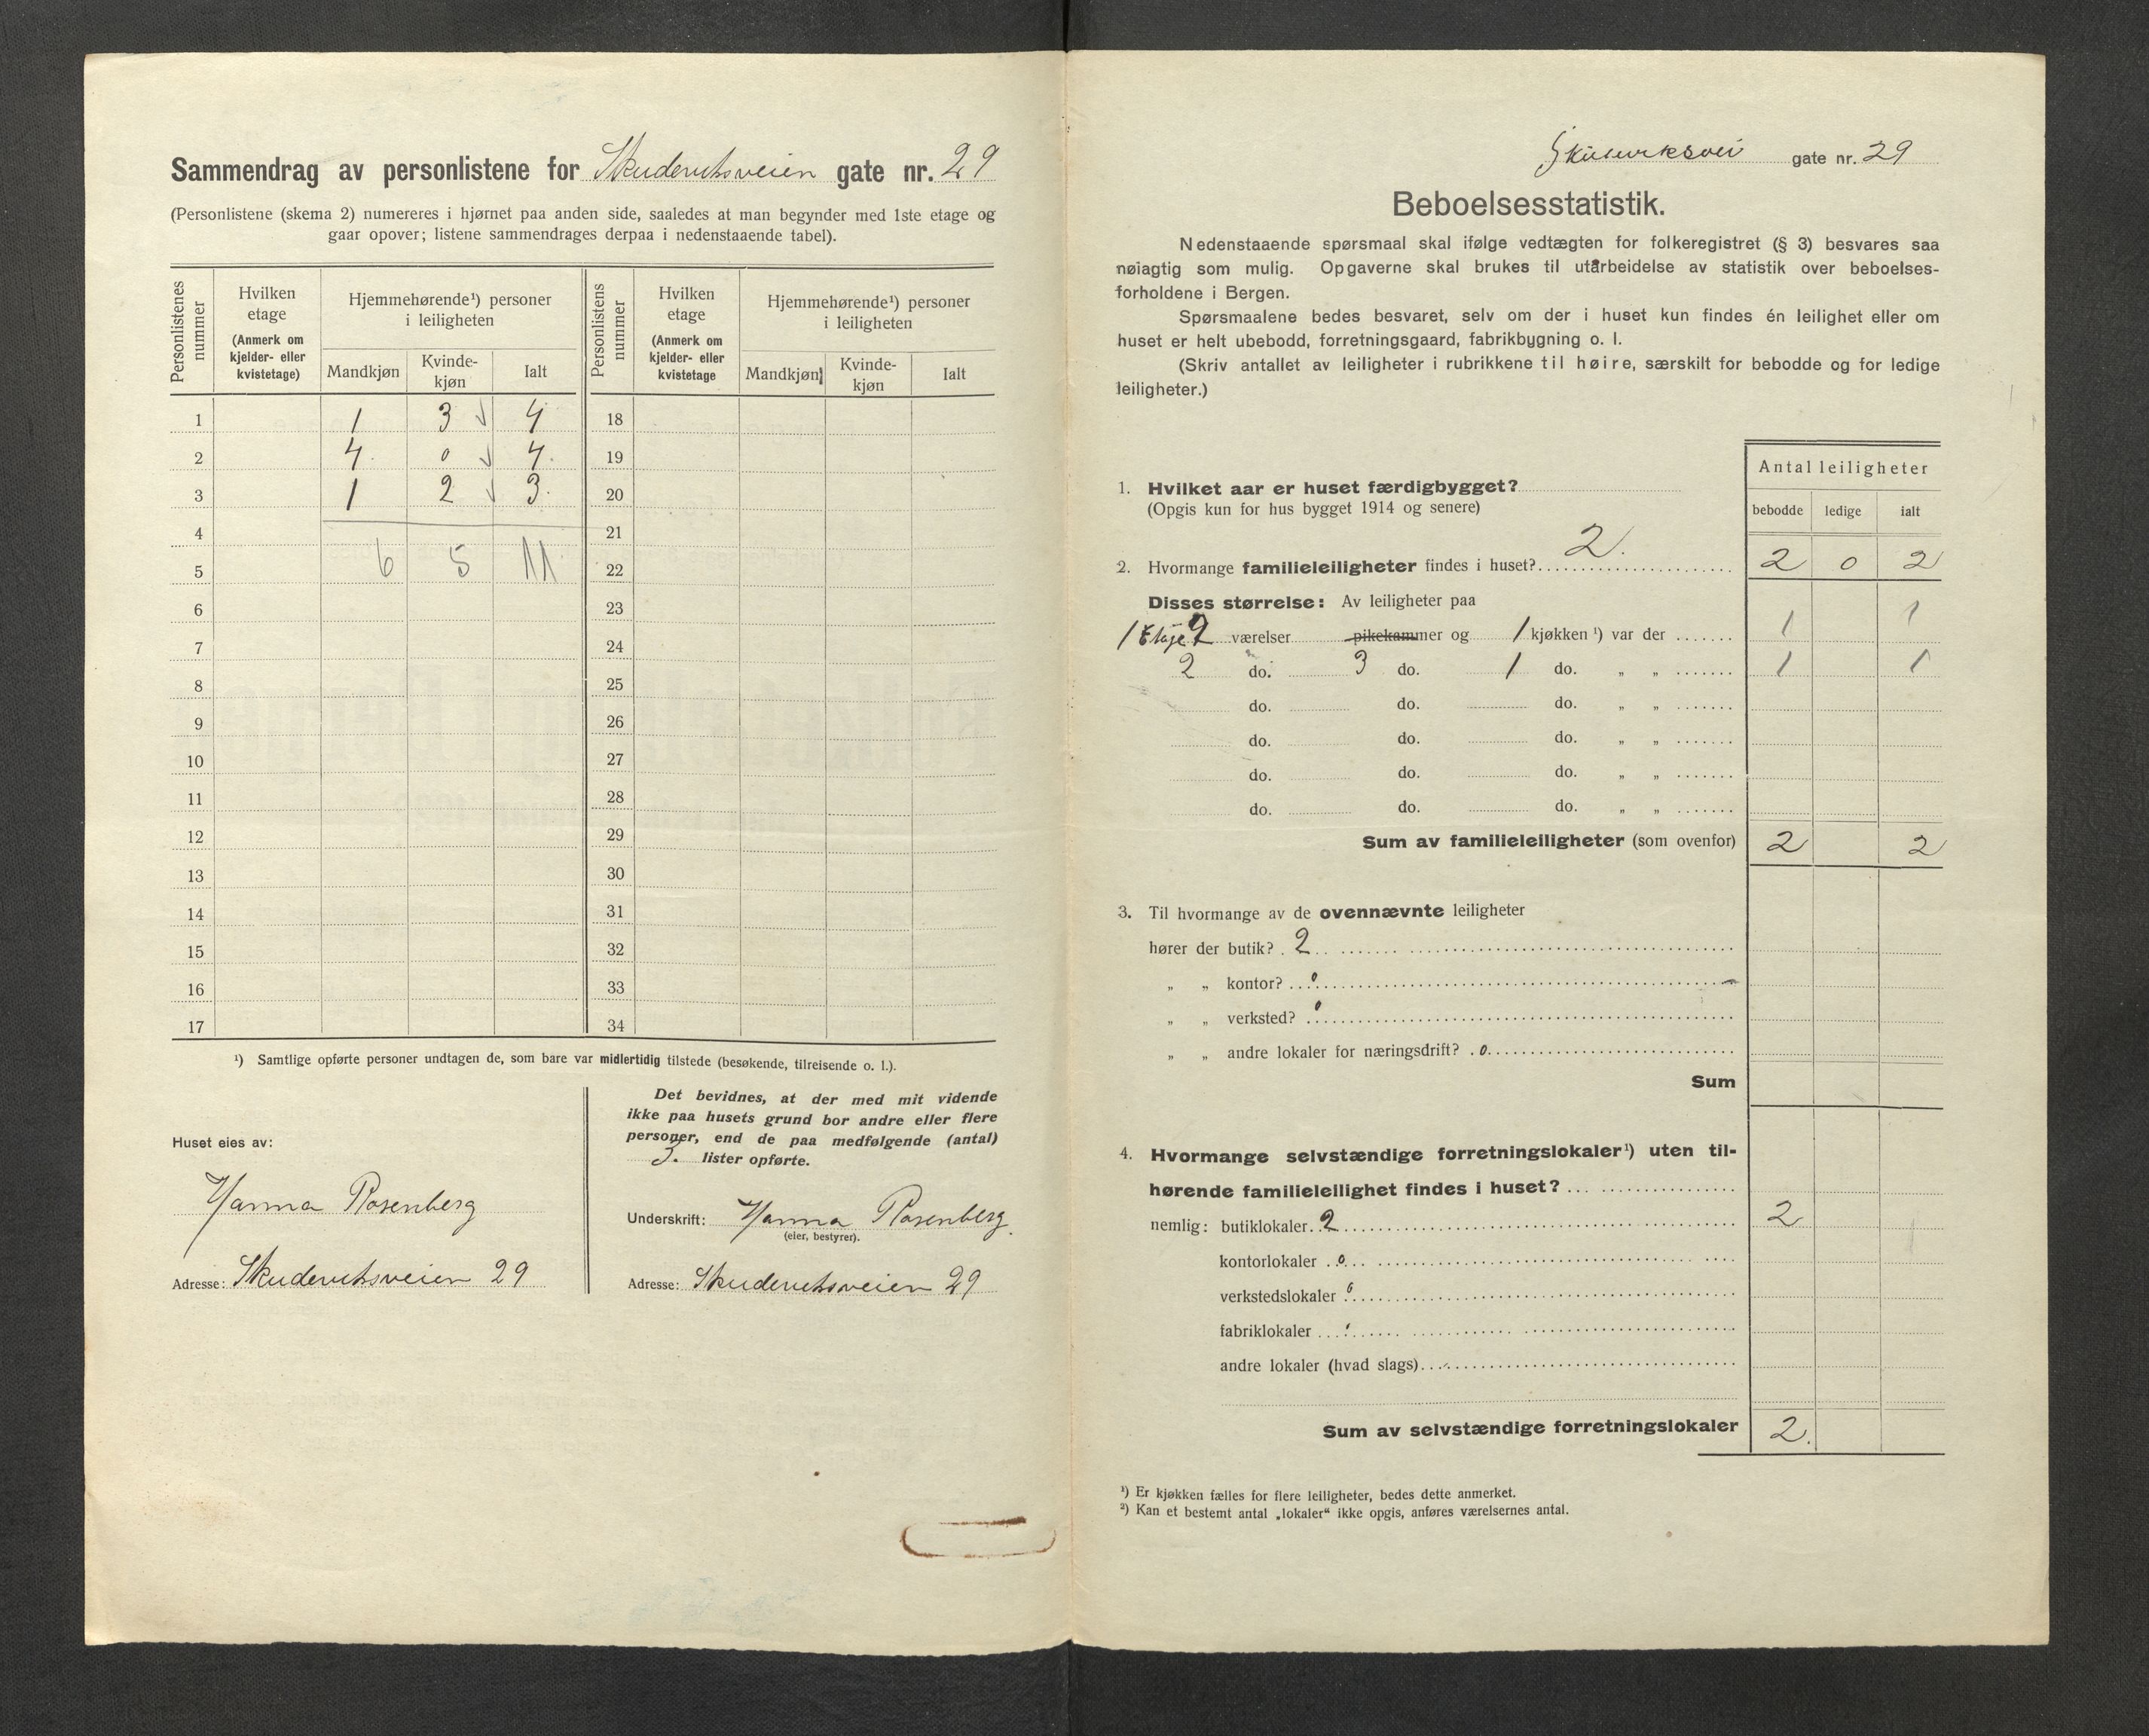 Sammendrag av personlistene for Skuderviksveien gate nr. 29
(Personlistene (skema 2) numereres i hjørnet paa anden side, saaledes at man begynder med 1ste etage og
gaar opover; listene sammendrages derpaa i nedenstaaende tabel).
Personlistenes nummer
Hvilken etage (Anmerk om kjelder- eller kvistetage)
Hjemmehørende¹) personer i leiligheten
Mandkjøn Kvindekjøn Ialt
Personlistens nummer
Hvilken etage (Anmerk om kjelder- eller kvistetage
Hjemmehørende¹) personer i leiligheten
Mandkjøn Kvinde-kjøn Ialt
1 1 3 4 18
2 4. 0 4. 19
3 1 2 3. 20
4 21
5 6 5 11 22
6 23
7 24
8 25
9 26
10 27
11 28
12 29
13 30
14 31
15 32
16 33
17 34
¹) Samtlige opførte personer undtagen de, som bare var midlertidig tilstede (besøkende, tilreisende o. l.).
Huset eies av:
Hanna Rosenberg
Adresse: Skuderviksveien 29
Det bevidnes, at der med mit vidende
ikke paa husets grund bor andre eller flere
personer, end de paa medfølgende (antal)
3. lister opførte.
Underskrift: Hanna Rosenberg.
(eier, bestyrer).
Adresse: Skuderviksveien 29
gate nr. 29
Beboelsesstatistik.
Nedenstaaende spørsmaal skal ifølge vedtægten for folkeregistret (§ 3) besvares saa
nøiagtig som mulig. Opgaverne skal brukes til utarbeidelse av statistik over beboelses-
forholdene i Bergen.
Spørsmaalene bedes besvaret, selv om der i huset kun findes én leilighet eller om
huset er helt ubebodd, forretningsgaard, fabrikbygning o. l.
(Skriv antallet av leiligheter i rubrikkene til høire, særskilt for bebodde og for ledige
leiligheter.)
Antal leiligheter
bebodde ledige ialt
1. Hvilket aar er huset færdigbygget?
(Opgis kun for hus bygget 1914 og senere)
2. Hvormange familieleiligheter findes i huset? 2. 2 0 2
Disses størrelse: Av leiligheter paa
1 Etage 2 værelser pikekammer og 1 kjøkken ¹) var der 1 1
2 do. 3 do. 1 do. „ „ 1 1
do. do. do. „ „
do. do. do. „ „
do. do. do. „ „
do. do. do. „ „
Sum av familieleiligheter (som ovenfor) 2 2
3. Til hvormange av de ovennævnte leiligheter
hører der butik? 2
„ „ kontor? 0
„ „ verksted? 0
„ „ andre lokaler for næringsdrift? 0
Sum
4. Hvormange selvstændige forretningslokaler¹) uten til-
hørende familieleilighet findes i huset?
nemlig: butiklokaler 2 2
kontorlokaler 0
verkstedslokaler 0
fabriklokaler
andre lokaler (hvad slags)
Sum av selvstændige forretningslokaler 2.
¹) Er kjøkken fælles for flere leiligheter, bedes dette anmerket.
²) Kan et bestemt antal „lokaler“ ikke opgis, anføres værelsernes antal.